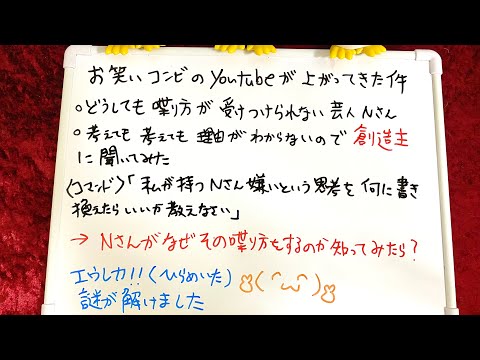 お笑いコンビのYoutubeが上がってきた件
○どうしても喋り方が受けつけられない芸人Nさん
○考えても考えても理由がわからないので創造主
に聞いてみた
〈コマンド〉「私が持つNさん嫌いという思考を何に書き
換えたらいいか教えなさい」
→Nさんがなぜその喋り方をするのか知ってみたら?
エウレカ!!(ひらめいた)
謎が解けました